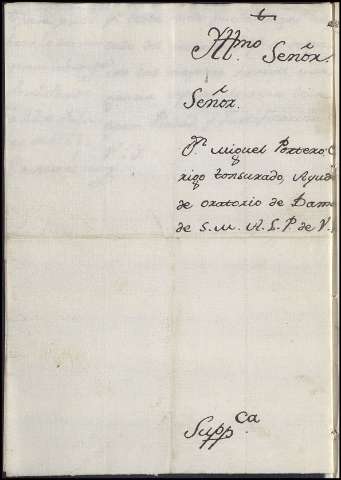 Yllmo. Señor.
Señor.
Dn. Miguel Portero C
rigo tonsurado, Ayud
de oratorio de Dam
de S. M. A. L. P. de V.
Suppca